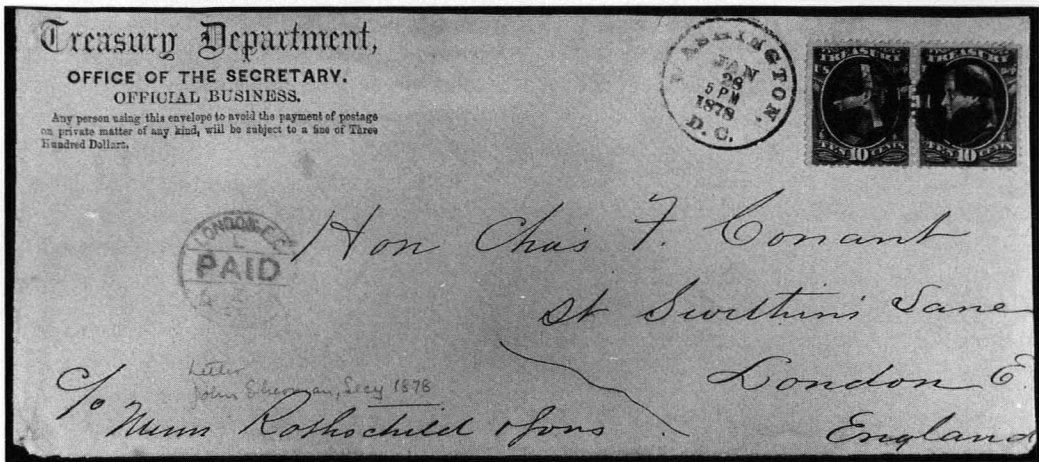 Treasury Department,
OFFICE OF THE SECRETARY.
OFFICIAL BUSINESS.
Any person using this envelope to avoid the payment of postage
on private matter of any kind, will be subject to a fine of Three
Hundred Dollars.
WASHINGTON,
JAN
28
5 PM
1878
D.C.
TREASURY
TEN 10 CENTS
TREASURY
TEN 10 CENTS
LONDON E.C
PAID
Hon Chas F. Conant
St Swithins Lane
London E.
England
Letter
John Sherman, Secy 1878
c/o
Rothschild & Sons